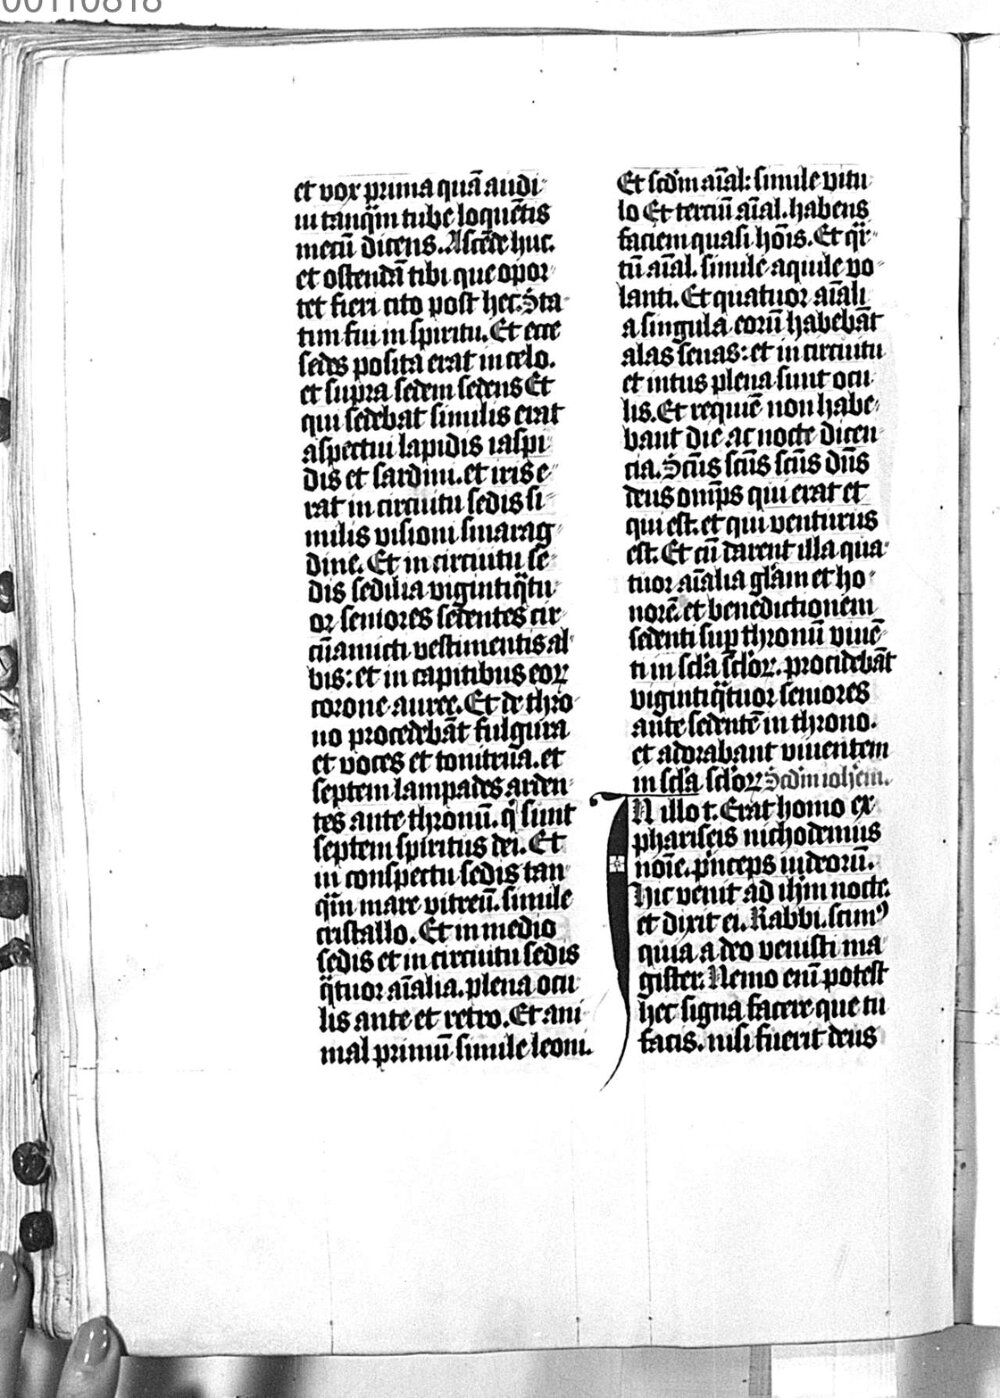 00110818
et vox prima quā audi
ui tanq̄m tube loquētis
mecū dicens. Ascēde huc.
et ostendā tibi que opor
tet fieri cito post hec. Sta
tim fui in spiritu. Et ecce
sedes posita erat in celo.
et supra sedem sedens Et
qui sedebat similis erat
aspectui lapidis iaspi
dis et sardini. et iris e
rat in circuitu sedis si
milis visioni smarag
dine. Et in circuitu se
dis sedilia vigintiq̄tu
or seniores sedentes cir
cūamicti vestimentis al
bis: et in capitibus eoꝝ
corone auree. Et de thro
no procedebāt fulgura
et voces et tonitrua. et
septem lampades arden
tes ante thronū. q̄ sunt
septem spiritus dei. Et
in conspectu sedis tan
q̄m mare vitreū. simile
cristallo. Et in medio
sedis et in circuitu sedis
q̄tuor aīalia. plena ocu
lis ante et retro. Et ani
mal primū simile leoni.
Et scd̄m aīal: simile vitu
lo Et terciū aīal. habens
faciem quasi hōis. Et q̄r
tū aīal. simile aquile vo
lanti. Et quatuor aīali
a singula eorū habebāt
alas senas: et in circuitu
et intus plena sunt ocu
lis. Et requiē non habe
bant die ac nocte dicen
cia. Sc̄us sc̄us sc̄us dn̄s
deus om̄ps qui erat et
qui est. et qui venturus
est. Et cū darent illa qua
tuor aīalia gl̄am et ho
norē et benedictionem
sedenti suꝑ thronū viuē
ti in scl̄a scl̄oꝝ. procidebāt
vigintiq̄tuor seniores
ante sedentē in throno.
et adorabant viuentem
in scl̄a scl̄oꝝ Scd̄m ioh̄em.
IN illo t. Erat homo ex
phariseis nichodemus
noīe. p̄nceps iudeorū.
Hic venit ad ih̄m nocte.
et dixit ei. Rabbi. scimꝰ
quia a deo venisti ma
gister. Nemo enī potest
hec signa facere que tu
facis. nisi fuerit deus